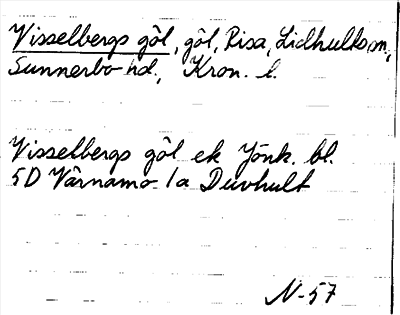 Visselbergs göl, göl, Risa, Lidhults sn,
Sunnerbo hd., Kron. l.
Visselbergs göl ek Jönk. bl.
5D Värnamo 1a Duvhult
N-57